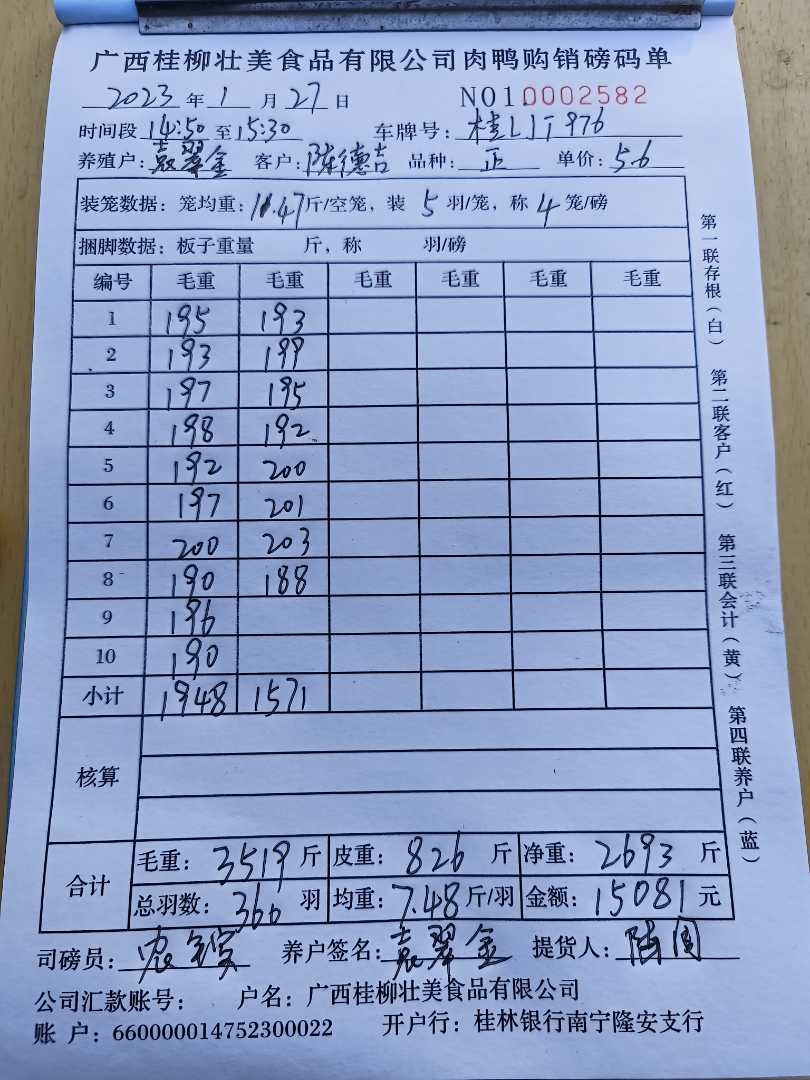 广西桂柳壮美食品有限公司肉鸭购销磅码单
2023 年 1 月 27 日 NO1.0002582
时间段 14:50 至 15:30 车牌号: 桂LJT976
养殖户: 袁翠金 客户: 陈德吉 品种: 正 单价: 5.6
装笼数据: 笼均重: 11.47 斤/空笼, 装 5 羽/笼, 称 4 笼/磅
捆脚数据: 板子重量 斤, 称 羽/磅
编号 毛重 毛重 毛重 毛重 毛重 毛重
1 195 193
2 193 199
3 197 195
4 198 192
5 192 200
6 197 201
7 200 203
8 190 188
9 196
10 190
小计 1948 1571
核算
合计
毛重: 3519 斤 皮重: 826 斤 净重: 2693 斤
总羽数: 360 羽 均重: 7.48 斤/羽 金额: 15081 元
司磅员: 养户签名: 袁翠金 提货人:
公司汇款账号: 户名: 广西桂柳壮美食品有限公司
账 户: 660000014752300022 开户行: 桂林银行南宁隆安支行
第一联存根(白) 第二联客户(红) 第三联会计(黄) 第四联养户(蓝)